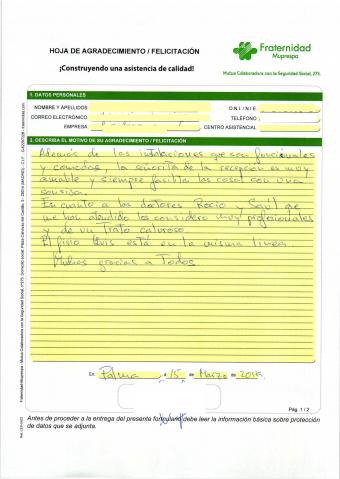 HOJA DE AGRADECIMIENTO / FELICITACIÓN
¡Construyendo una asistencia de calidad!
Fraternidad
Muprespa
Mutua Colaboradora con la Seguridad Social, 275
1. DATOS PERSONALES
NOMBRE Y APELLIDOS
D.N.I. / N.I.E.
CORREO ELECTRÓNICO
TELÉFONO
EMPRESA
CENTRO ASISTENCIAL
2. DESCRIBA EL MOTIVO DE SU AGRADECIMIENTO / FELICITACIÓN
Además de las instalaciones que son funcionales
y comodas, la señorita de la recepcion es muy
amable y siempre facilita las cosas con una
sonrisa.
En cuanto a los doctores Rocio y Saul que
me han atendido los considero muy profesionales
y de un Trato caluroso
El fisio Luis está en la misma linea
Muchas gracias a Todos
En Palma, a 15 de Marzo de
Pág. 1 / 2
Antes de proceder a la entrega del presente formulario debe leer la información básica sobre protección
de datos que se adjunta.